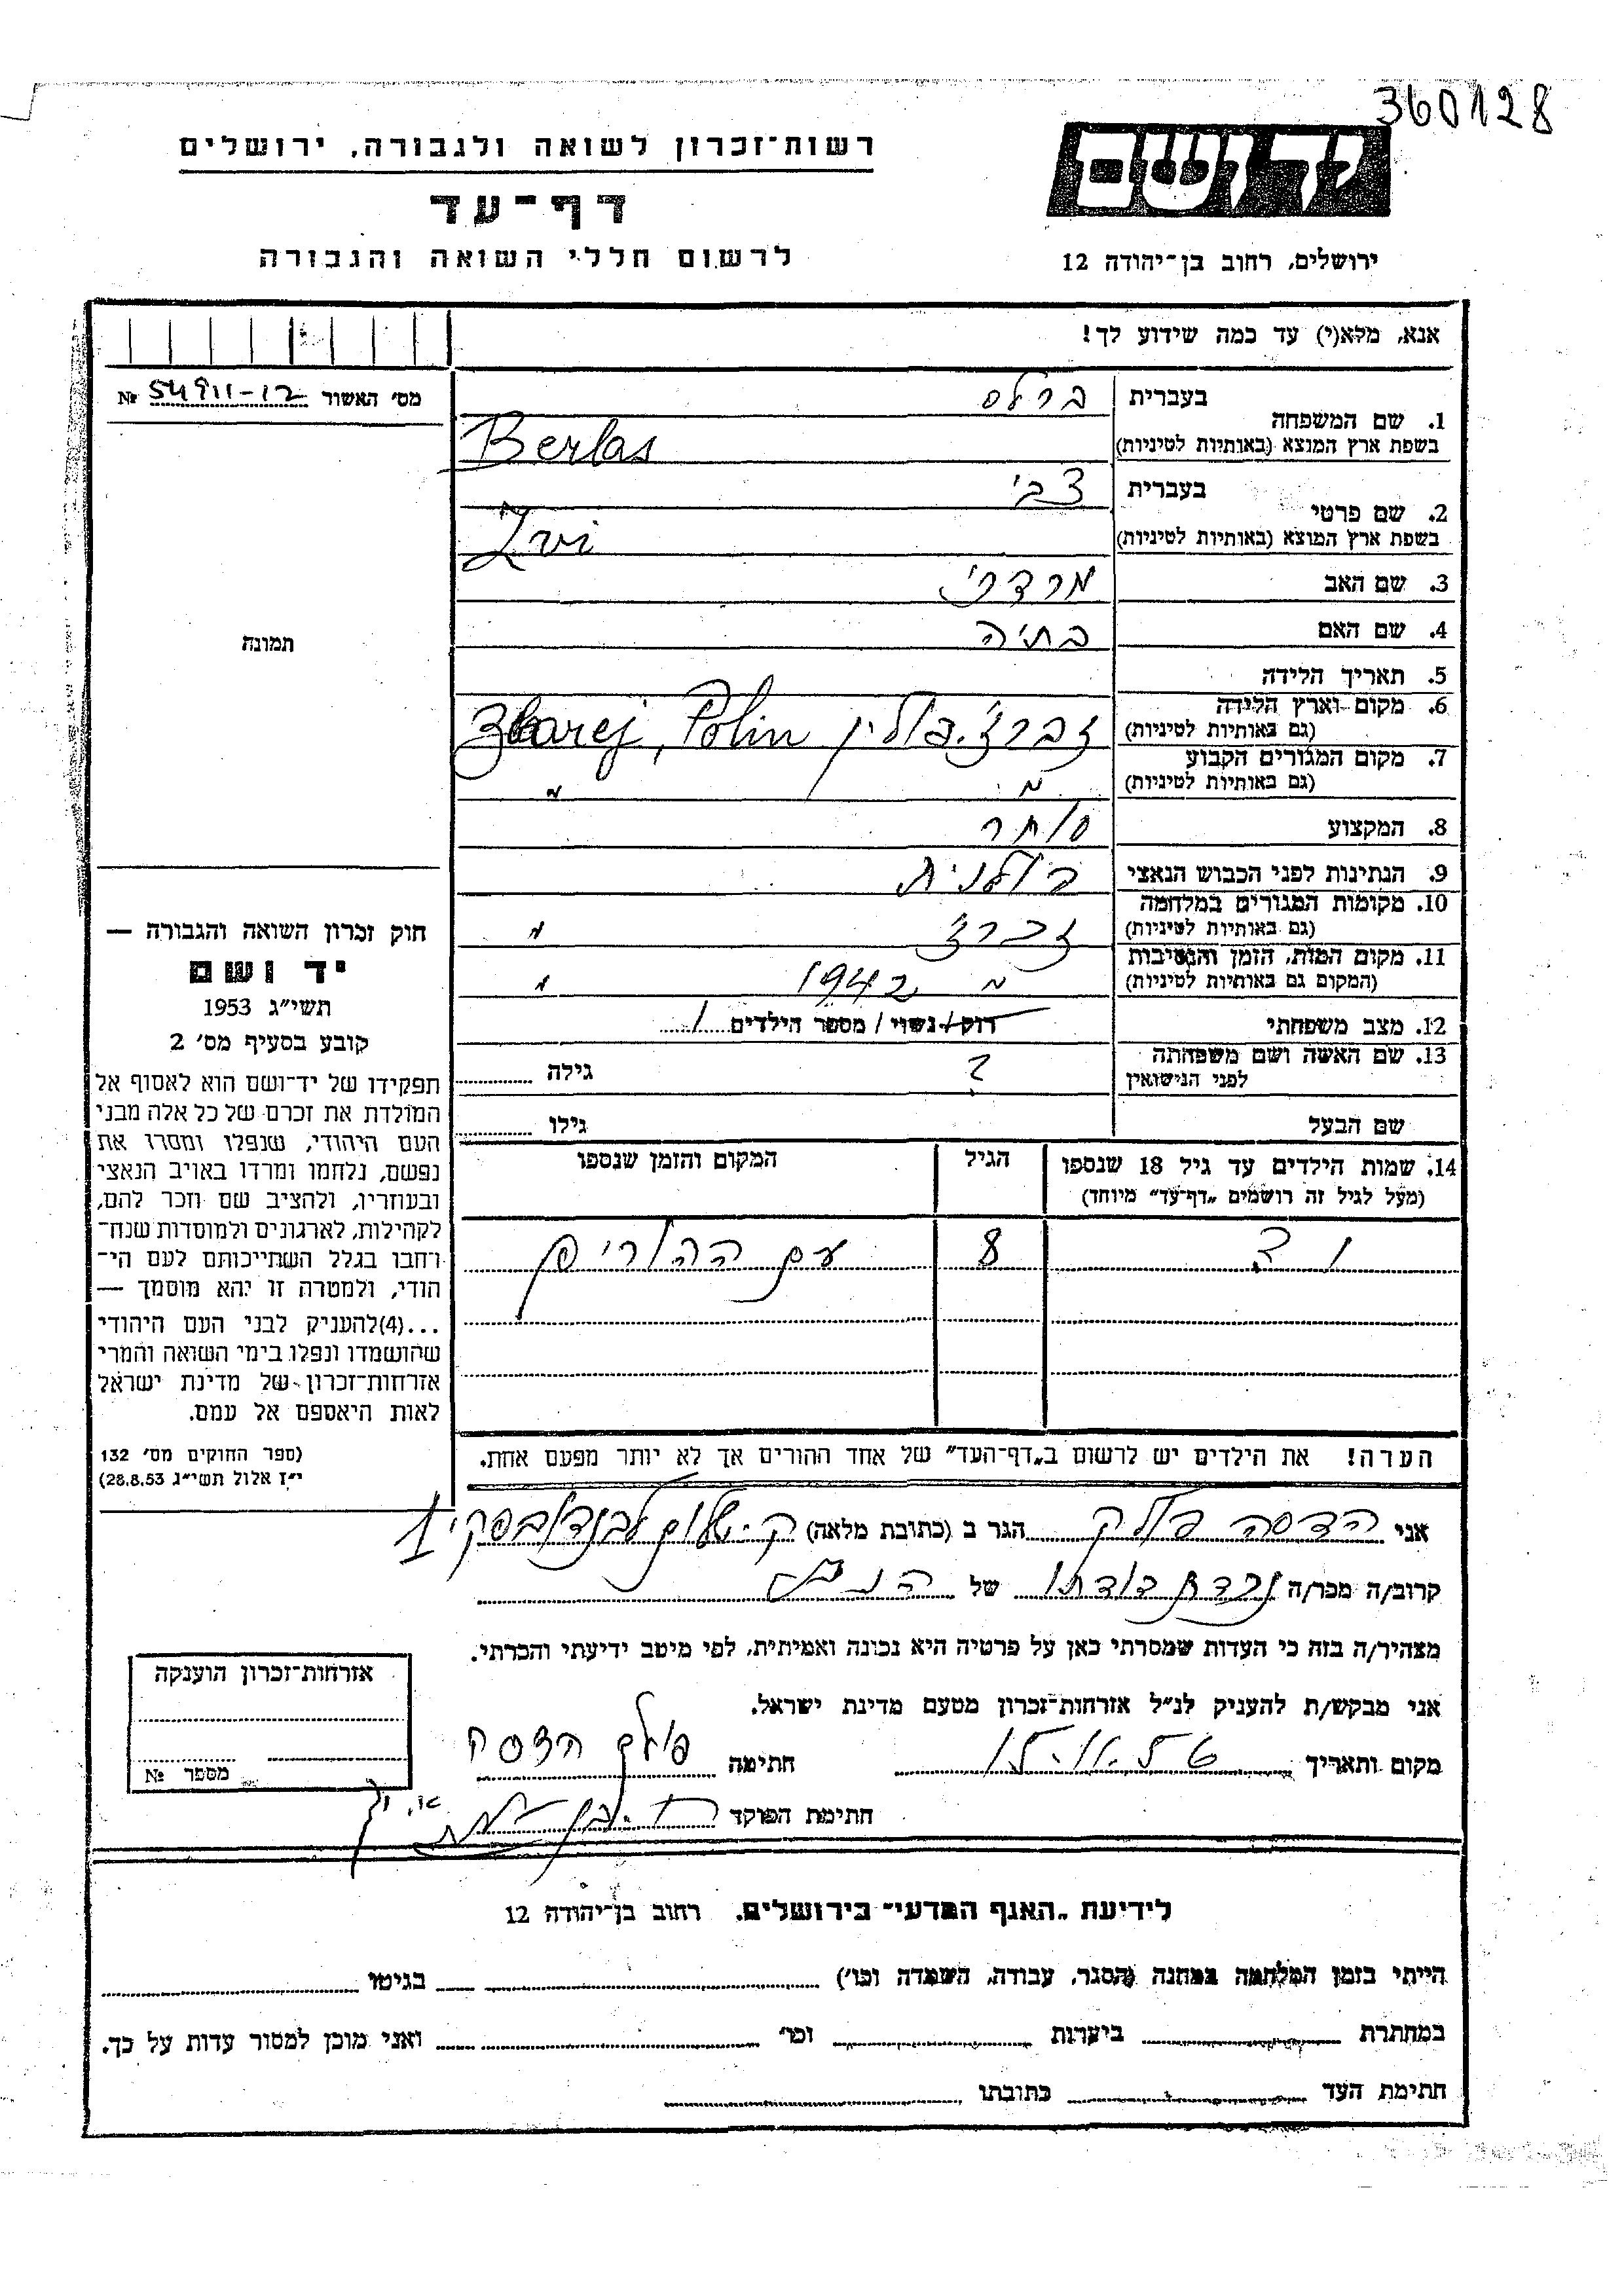 360128
רשות־זכרון לשואה ולגבורה, ירושלים
יד ושם
דף־עד
לרשום חללי השואה והגבורה
ירושלים, רחוב בן־יהודה 12
אנא, מלא(י) עד כמה שידוע לך!
מס' האשור 54911-12 №
1. שם המשפחה
בעברית ברלס
בשפת ארץ המוצא (באותיות לטיניות) Berlas
2. שם פרטי
בעברית צבי
בשפת ארץ המוצא (באותיות לטיניות) Zvi
3. שם האב מרדכי
4. שם האם בתיה
5. תאריך הלידה
6. מקום וארץ הלידה
(גם באותיות לטיניות) זברז'. פולין Zbarej, Polin
7. מקום המגורים הקבוע
(גם באותיות לטיניות) " "
8. המקצוע סוחר
9. הנתינות לפני הכבוש הנאצי פולנית
10. מקומות המגורים במלחמה
(גם באותיות לטיניות) זברז' "
11. מקום המות, הזמן והנסיבות
(המקום גם באותיות לטיניות) " 1942 "
12. מצב משפחתי רווק / נשוי / מספר הילדים 1
13. שם האשה ושם משפחתה
לפני הנישואין ? גילה
שם הבעל גילו
14. שמות הילדים עד גיל 18 שנספו
(מעל לגיל זה רושמים „דף־עד" מיוחד)
הגיל
המקום והזמן שנספו
8 עם ההורים
הערה! את הילדים יש לרשום ב„דף־העד" של אחד ההורים אך לא יותר מפעם אחת.
תמונה
חוק זכרון השואה והגבורה —
יד ושם
תשי"ג 1953
קובע בסעיף מס' 2
תפקידו של יד־ושם הוא לאסוף אל
המולדת את זכרם של כל אלה מבני
העם היהודי, שנפלו ומסרו את
נפשם, נלחמו ומרדו באויב הנאצי
ובעוזריו, ולהציב שם וזכר להם,
לקהילות, לארגונים ולמוסדות שנח־
רחבו בגלל השתייכותם לעם הי־
הודי, ולמטרה זו יהא מוסמך —
...(4)להעניק לבני העם היהודי
שהושמדו ונפלו בימי השואה והמרי
אזרחות־זכרון של מדינת ישראל
לאות היאספם אל עמם.
(ספר החוקים מס' 132
י"ז אלול תשי"ג 28.8.53)
אני הדסה פולק הגר ב (כתובת מלאה) ק.
קרוב/ה מכר/ה של הנ"ל
מצהיר/ה בזה כי העדות שמסרתי כאן על פרטיה היא נכונה ואמיתית, לפי מיטב ידיעתי והכרתי.
אני מבקש/ת להעניק לנ"ל אזרחות־זכרון מטעם מדינת ישראל.
מקום ותאריך חתימה פולק הדסה
חתימת הפוקד
אזרחות־זכרון הוענקה
מספר №
לידיעת „האגף המדעי" בירושלים, רחוב בן־יהודה 12
הייתי בזמן המלחמה במחנה (הסגר, עבודה, השמדה וכו') בגיטו
במחתרת ביערות וכו' ואני מוכן למסור עדות על כך.
חתימת העד כתובתו